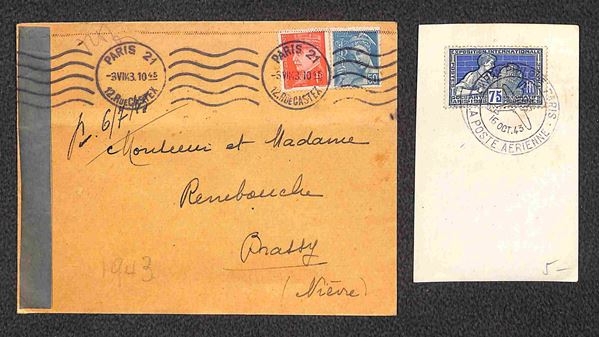 PARIS 21
-3 VII 43.10 45
12. RUE CASTEX
PARIS 21
-3 VII 43.10 45
12. RUE CASTEX
50
6/7
Monsieur et Madame
Renebouche
Brassy
(Nièvre)
1943
EXPOSITION INTERNATIONALE
75
PARIS
16 OCT. 43
LA POSTE AERIENNE
5-